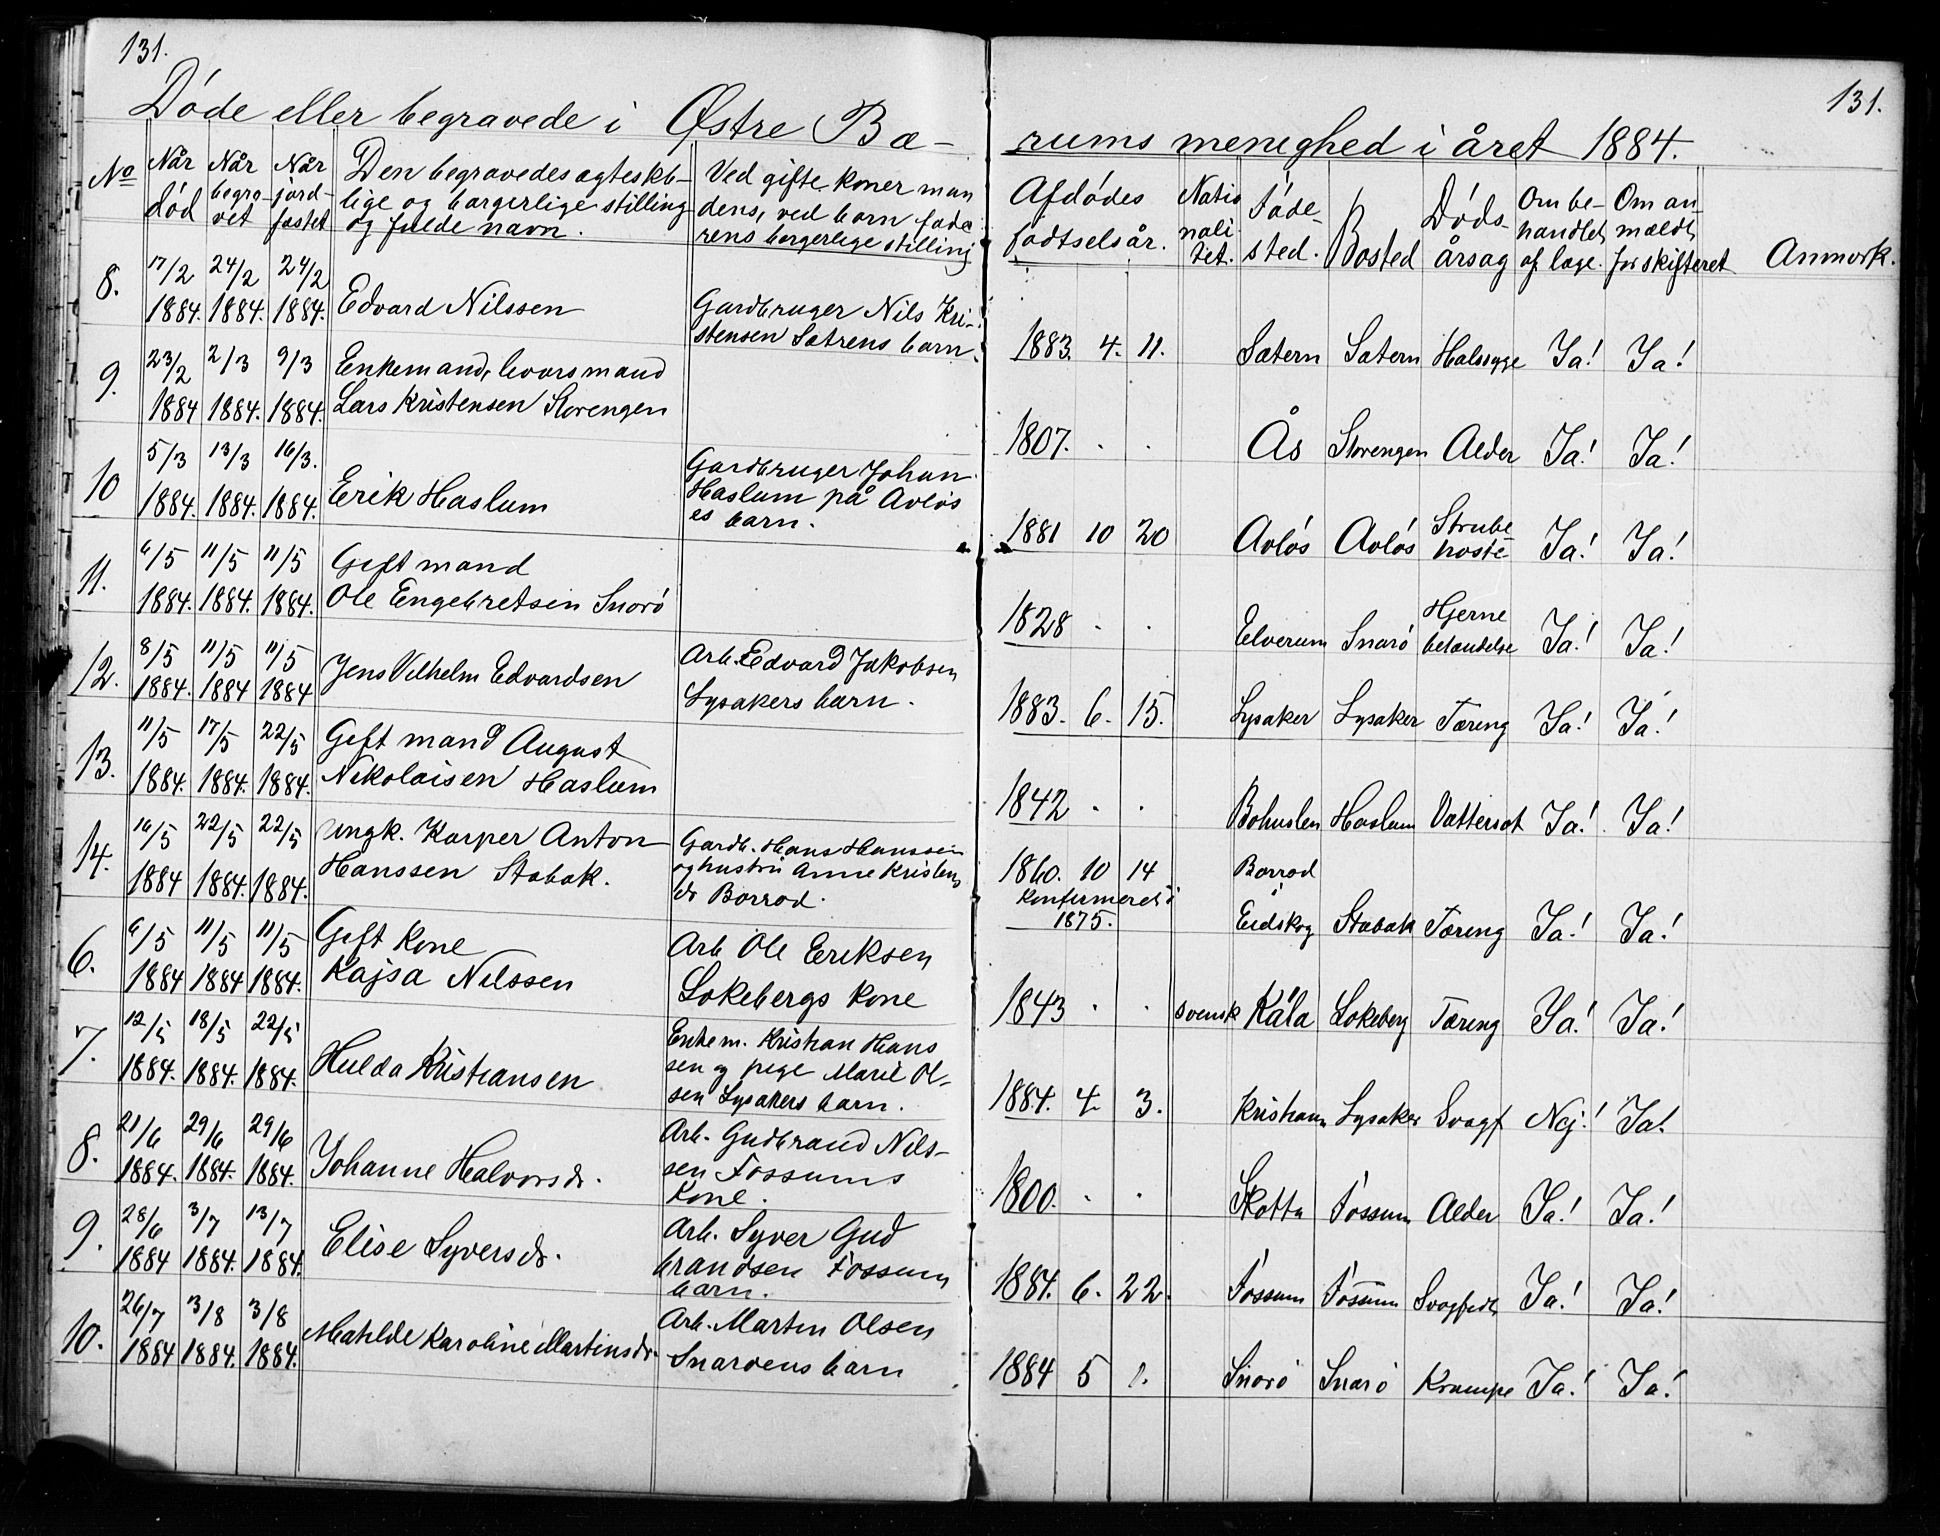 131.
131.
Døde eller begravede i Østre Bæ-
rums menighed i året 1884.
No
Når død
Når begravet
Når jordfæstet
Den begravedes ægteskabelige og borgerlige stilling og fulde navn.
Ved gifte koner mandens, ved børn faderens borgerlige stilling
Afdødes fødselsår.
Nationalitet.
Fødested.
Bosted
Dødsårsag
Om behandlet af læge.
Om anmældt for skifteret
Anmærk.
8. 17/2 1884. 24/2 1884. 24/2 1884. Edvard Nilssen
Gardbruger Nils Kri-
stensen Sætrens barn.
1883. 4. 11. Sætern Sætern Halssyge Ja! Ja!
9. 23/2 1884 2/3 1884. 9/3 1884. Enkemand,
Lars Kristensen Storengen
1807. . . Ås Storengen Alder Ja! Ja!
10 5/3 1884. 13/3 1884. 16/3. 1884. Erik Haslum
Gardbruger Johan
Haslum på Avløs
es barn.
1881 10 20 Avløs Avløs Strube
hoste Ja! Ja!
11. 6/5 1884. 11/5 1884. 11/5 1884. Gift mand
Ole Engebretsen Snarø
1828 . . Elverum Snarø Hjerne
betændelse Ja! Ja!
12. 8/5 1884. 11/5 1884 11/5 1884 Jens Vilhelm Edvardsen
Arb. Edvard Jakobsen
Lysakers barn.
1883. 6. 15. Lysaker Lysaker Tæring Ja! Ja!
13. 11/5 1884. 17/5 1884. 22/5 1884. Gift mand August
Nikolaisen Haslum
1842 . . Bohuslen Haslum Vattersot Ja! Ja!
14. 16/5 1884 22/5 1884. 22/5 1884. Ungk. Karper Anton
Hanssen Stabæk.
Gardb. Hans Hanssen
og hustru Anne Kristens
dr Borrod.
1860. 10 14
Konfirmeret i
1875.
Borrod
i
Eidskog Stabæk Tæring Ja! Ja!
6. 6/5 1884 11/5 1884 11/5 1884. Gift kone
Kajsa Nilssen
Arb Ole Eriksen
Løkebergs kone
1843 . . svensk Kåla Løkeberg Tæring Ja! Ja!
7. 12/5 1884. 18/5 1884. 22/5 1884. Hulda Kristiansen
Enkem. Kristian Hans
sen og pige Marie Ol-
sen Lysakers barn.
1884. 4 3. Kristian Lysaker Svagf Nej! Ja!
8. 21/6 1884. 29/6 1884. 29/6 1884. Johanne Halvorsdr.
Arb. Gudbrand Nils-
sen Fossums
kone.
1800. . . Skotta Fossum Alder Ja! Ja!
9. 28/6 1884 3/7 1884. 13/7 1884. Elise Syversdr.
Arb. Syver Gud
brandsen Fossum
barn.
1884. 6. 22. Fossum Fossum Svagfødt Ja! Ja!
10. 26/7 1884 3/8 1884. 3/8 1884. Matilde Karoline Martinsdr.
Arb. Martin Olsen
Snarøens barn
1884 5 1. Snarø Snarø Krampe Ja! Ja!